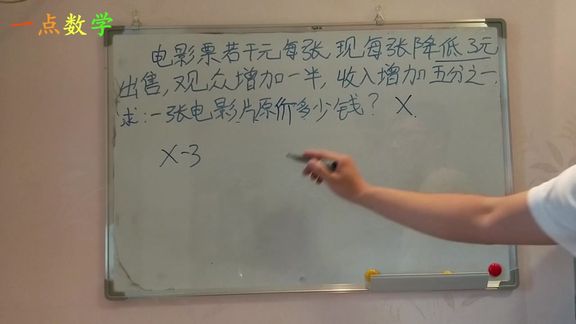 一点数学
电影票若干元每张 现每张降低3元
出售,观众增加一半,收入增加五分之一.
求:一张电影片原价多少钱? X
X-3